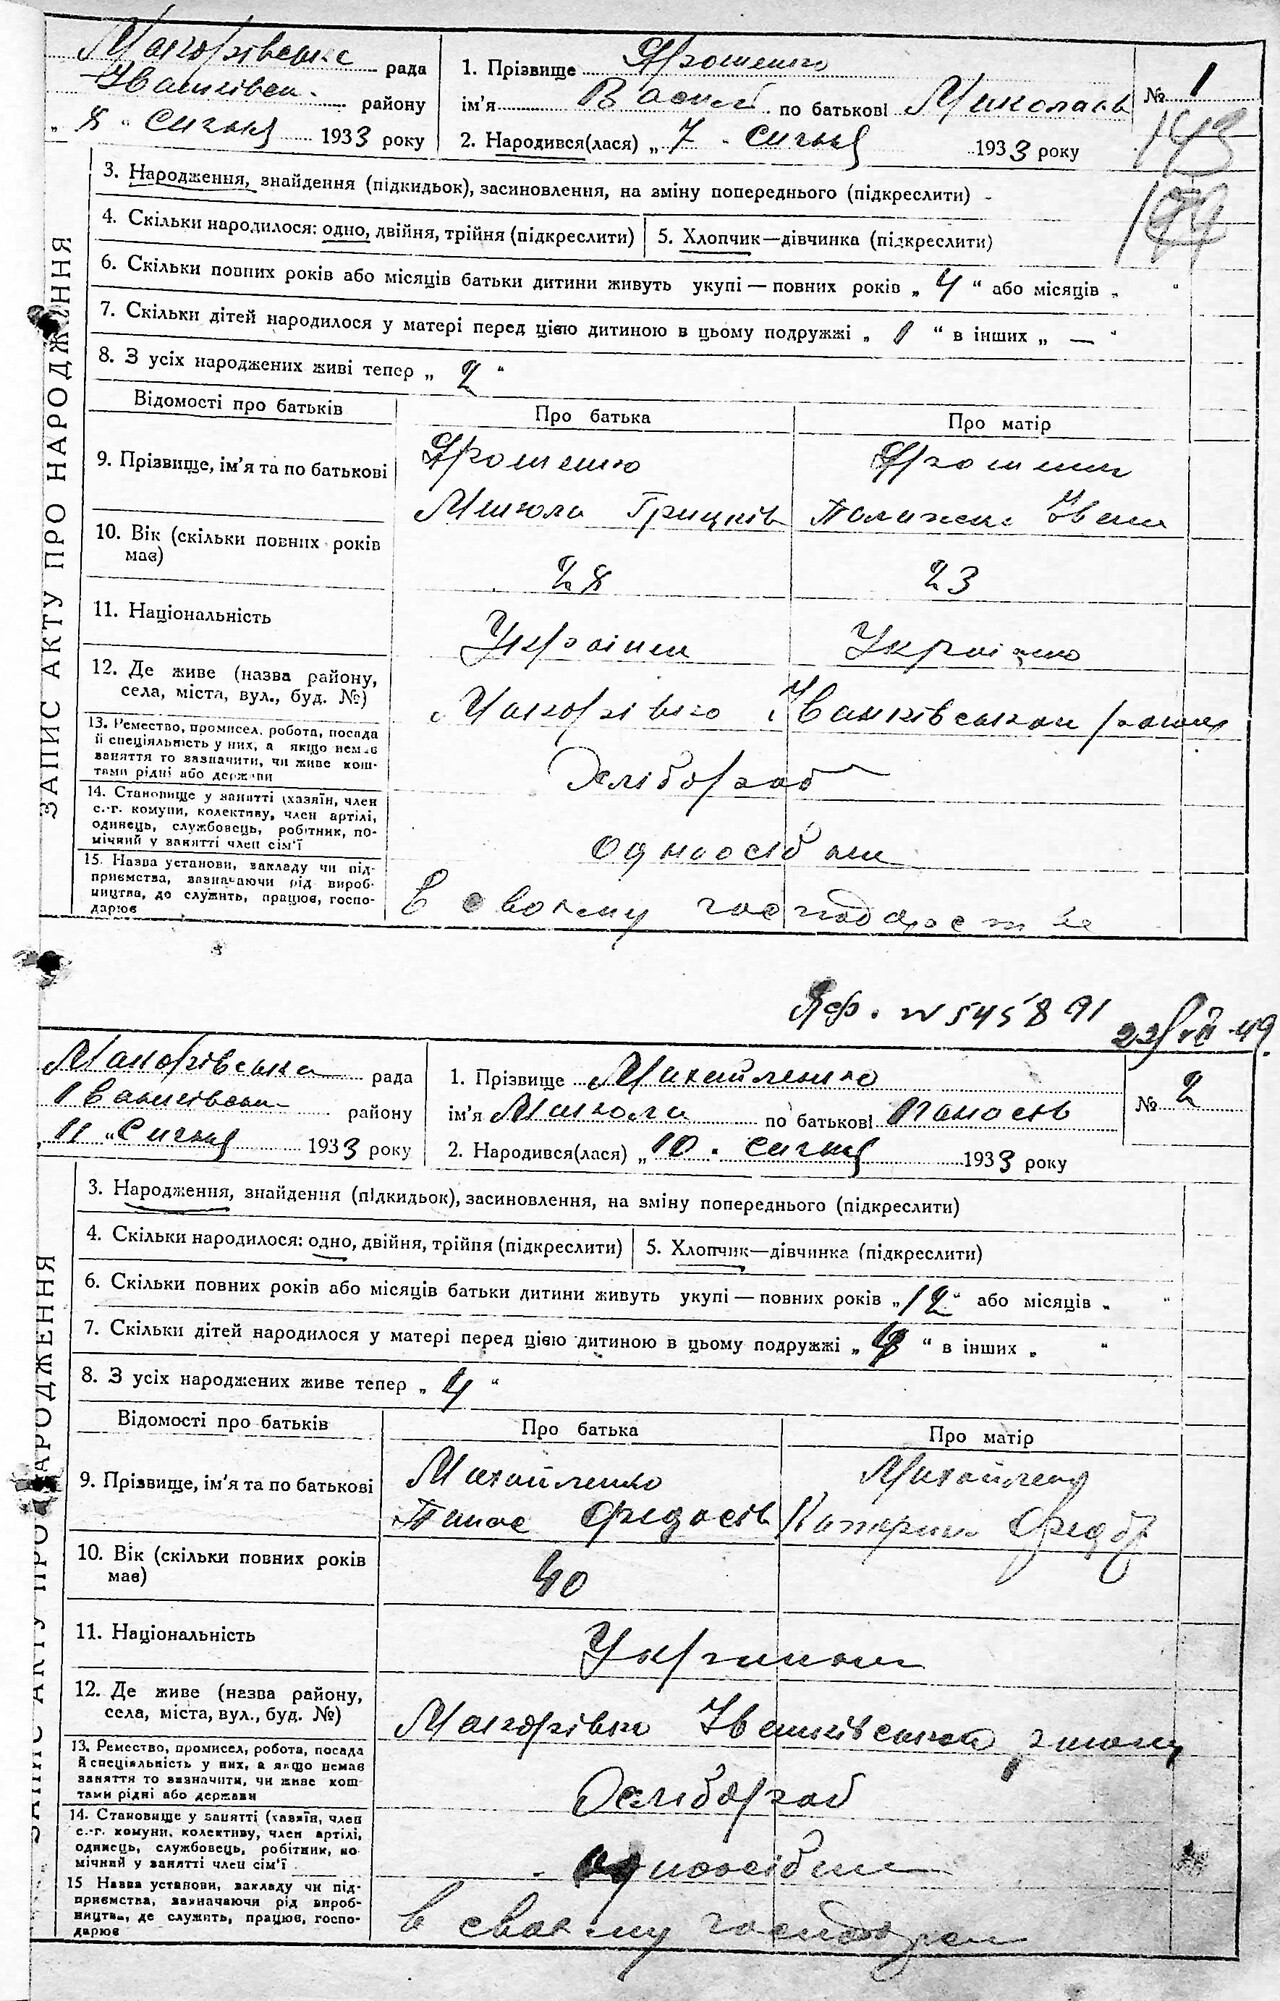 Макарівська рада
Іванківськ. району
„ 8 „ січня 1933 року
1. Прізвище Ярошенко
ім'я Василь по батькові Миколаєв
2. Народився(лася) „ 7 „ січня 1933 року
№ 1
143
3. Народження, знайдення (підкидьок), засиновлення, на зміну попереднього (підкреслити)
4. Скільки народилося: одно, двійня, трійня (підкреслити)
5. Хлопчик—дівчинка (підкреслити)
6. Скільки повних років або місяців батьки дитини живуть укупі — повних років „ 4 “ або місяців „ “
7. Скільки дітей народилося у матері перед цією дитиною в цьому подружжі „ 1 “ в інших „ — “
8. З усіх народжених живі тепер „ 2 “
Відомості про батьків
Про батька
Про матір
9. Прізвище, ім'я та по батькові
Ярошенко
Микола Грицьків
Ярошенко
Іван
10. Вік (скільки повних років має)
28
23
11. Національність
Українець
Українка
12. Де живе (назва району,
села, міста, вул., буд. №)
Макарівка Іванківського району
13. Ремество, промисел, робота, посада
й спеціяльність у них, а якщо немає
заняття то зазначити, чи живе кош-
тами рідні або держави
Хлібороб
14. Становище у занятті (хазяїн, член
с.-г. комуни, колективу, член артілі,
одинець, службовець, робітник, по-
мічний у занятті член сім'ї
одноосібник
15. Назва установи, закладу чи під-
приємства, зазначаючи рід вироб-
ництва, де служить, працює, госпо-
дарює
В своєму господарстві
ЗАПИС АКТУ ПРО НАРОДЖЕННЯ
№ 545891
Макарівська рада
Іванківськ району
„ 11 „ Січня 1933 року
1. Прізвище Михайленко
ім'я Микола по батькові Панасів
2. Народився(лася) „ 10 „ січня 1933 року
№ 2
3. Народження, знайдення (підкидьок), засиновлення, на зміну попереднього (підкреслити)
4. Скільки народилося: одно, двійня, трійня (підкреслити)
5. Хлопчик—дівчинка (підкреслити)
6. Скільки повних років або місяців батьки дитини живуть укупі — повних років „ 12 “ або місяців „ “
7. Скільки дітей народилося у матері перед цією дитиною в цьому подружжі „ “ в інших „ “
8. З усіх народжених живе тепер „ 4 “
Відомості про батьків
Про батька
Про матір
9. Прізвище, ім'я та по батькові
Михайленко
Панас Федосів
Михайленко
Катерина
10. Вік (скільки повних років
має)
40
11. Національність
Українці
12. Де живе (назва району,
села, міста, вул., буд. №)
Макарівка Іванківського району
13. Ремество, промисел, робота, посада
й спеціяльність у них, а якщо немає
заняття то зазначити, чи живе кош-
тами рідні або держави
Хлібороб
14. Становище у занятті (хазяїн, член
с.-г. комуни, колективу, член артілі,
одинець, службовець, робітник, по-
мічний у занятті член сім'ї
одноосібник
15 Назва установи, закладу чи під-
приємства, зазначаючи рід вироб-
ництва, де служить, працює, госпо-
дарює
в своєму господар
ЗАПИС АКТУ ПРО НАРОДЖЕННЯ